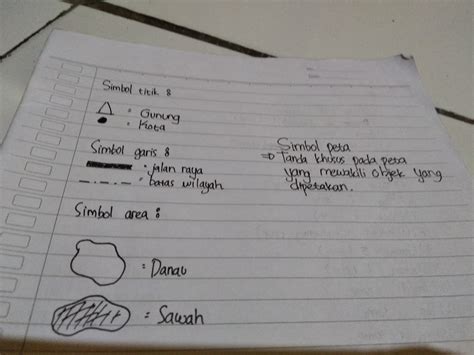 Simbol titik :
: Gunung
: Kota
Simbol garis :
: jalan raya
: batas wilayah
Simbol area :
: Danau
: Sawah
Simbol peta
⇒ Tanda khusus pada peta
yang mewakili objek yang
dipetakan.